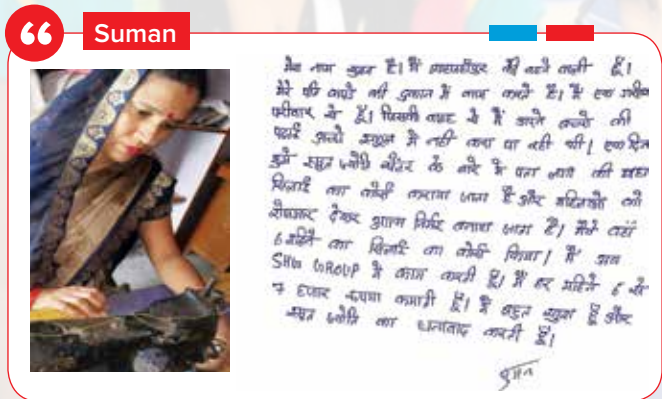 Suman
मेरा नाम सुमन है। मैं की रहने वाली हूँ।
मेरे पति कपड़े की दुकान में काम करते हैं। मैं एक गरीब
परीवार से हूँ। जिसकी वजह से मैं अपने बच्चों की
पढाई अच्छे स्कूल में नही करा पा रही थी। एक दिन
मुझे ज्योति सेंटर के बारे में पता की
सिलाई का कोर्स कराया जाता है और महिलाओं को
रोजगार देकर आत्म निर्भर बनाया जाता है। मैंने वहाँ
6 महिने का सिलाई का कोर्स किया। मैं अब
SHG GROUP में काम करती हूँ। मैं हर महिने 6 से
7 हजार रुपया कमाती हूँ। मैं बहुत खुश हूँ और
ज्योति का धन्यवाद करती हूँ।
सुमन